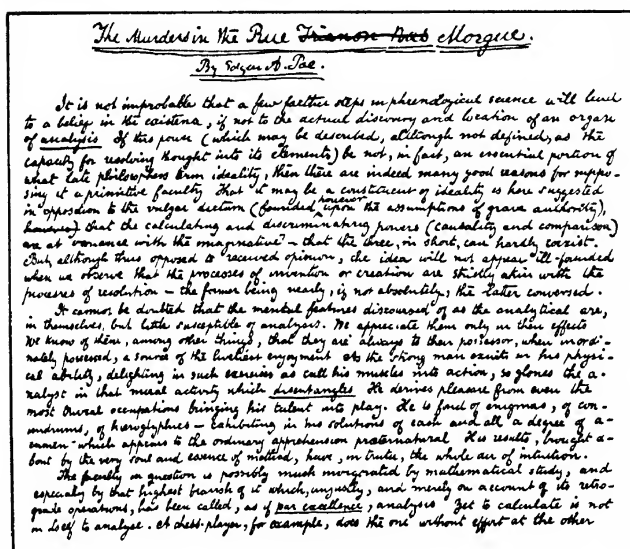 The Murders in the Rue Trianon Bas Morgue.
By Edgar A. Poe.
It is not improbable that a few farther steps in phrenological science will lead
to a belief in the existence, if not to the actual discovery and location of an organ
of analysis. If this power (which may be described, although not defined, as the
capacity for resolving thought into its elements) be not, in fact, an essential portion of
what late philosophers term ideality, then there are indeed many good reasons for suppo-
sing it a primitive faculty. That it may be a constituent of ideality is here suggested
in opposition to the vulgar dictum (founded, however, upon the assumptions of grave authority),
however, that the calculating and discriminating powers (causality and comparison)
are at variance with the imaginative — that the three, in short, can hardly coexist.
But, although thus opposed to received opinion, the idea will not appear ill-founded
when we observe that the processes of invention or creation are strictly akin with the
processes of resolution — the former being nearly, if not absolutely, the latter conversed.
It cannot be doubted that the mental features discoursed of as the analytical are,
in themselves, but little susceptible of analysis. We appreciate them only in their effects
We know of them, among other things, that they are always to their possessor, when inordi-
nately possessed, a source of the liveliest enjoyment. As the strong man exults in his physi-
cal ability, delighting in such exercises as call his muscles into action, so glories the a-
nalyst in that moral activity which disentangles. He derives pleasure from even the
most trivial occupations bringing his talent into play. He is fond of enigmas, of con-
undrums, of hieroglyphics — exhibiting in his solutions of each and all a degree of a-
cumen which appears to the ordinary apprehension præternatural. His results, brought a-
bout by the very soul and essence of method, have, in truth, the whole air of intuition.
The faculty in question is possibly much invigorated by mathematical study, and
especially by that highest branch of it which, unjustly, and merely on account of its retro-
grade operations, has been called, as if par excellence, analysis. Yet to calculate is not
in itself to analyse. A chess-player, for example, does the one without effort at the other